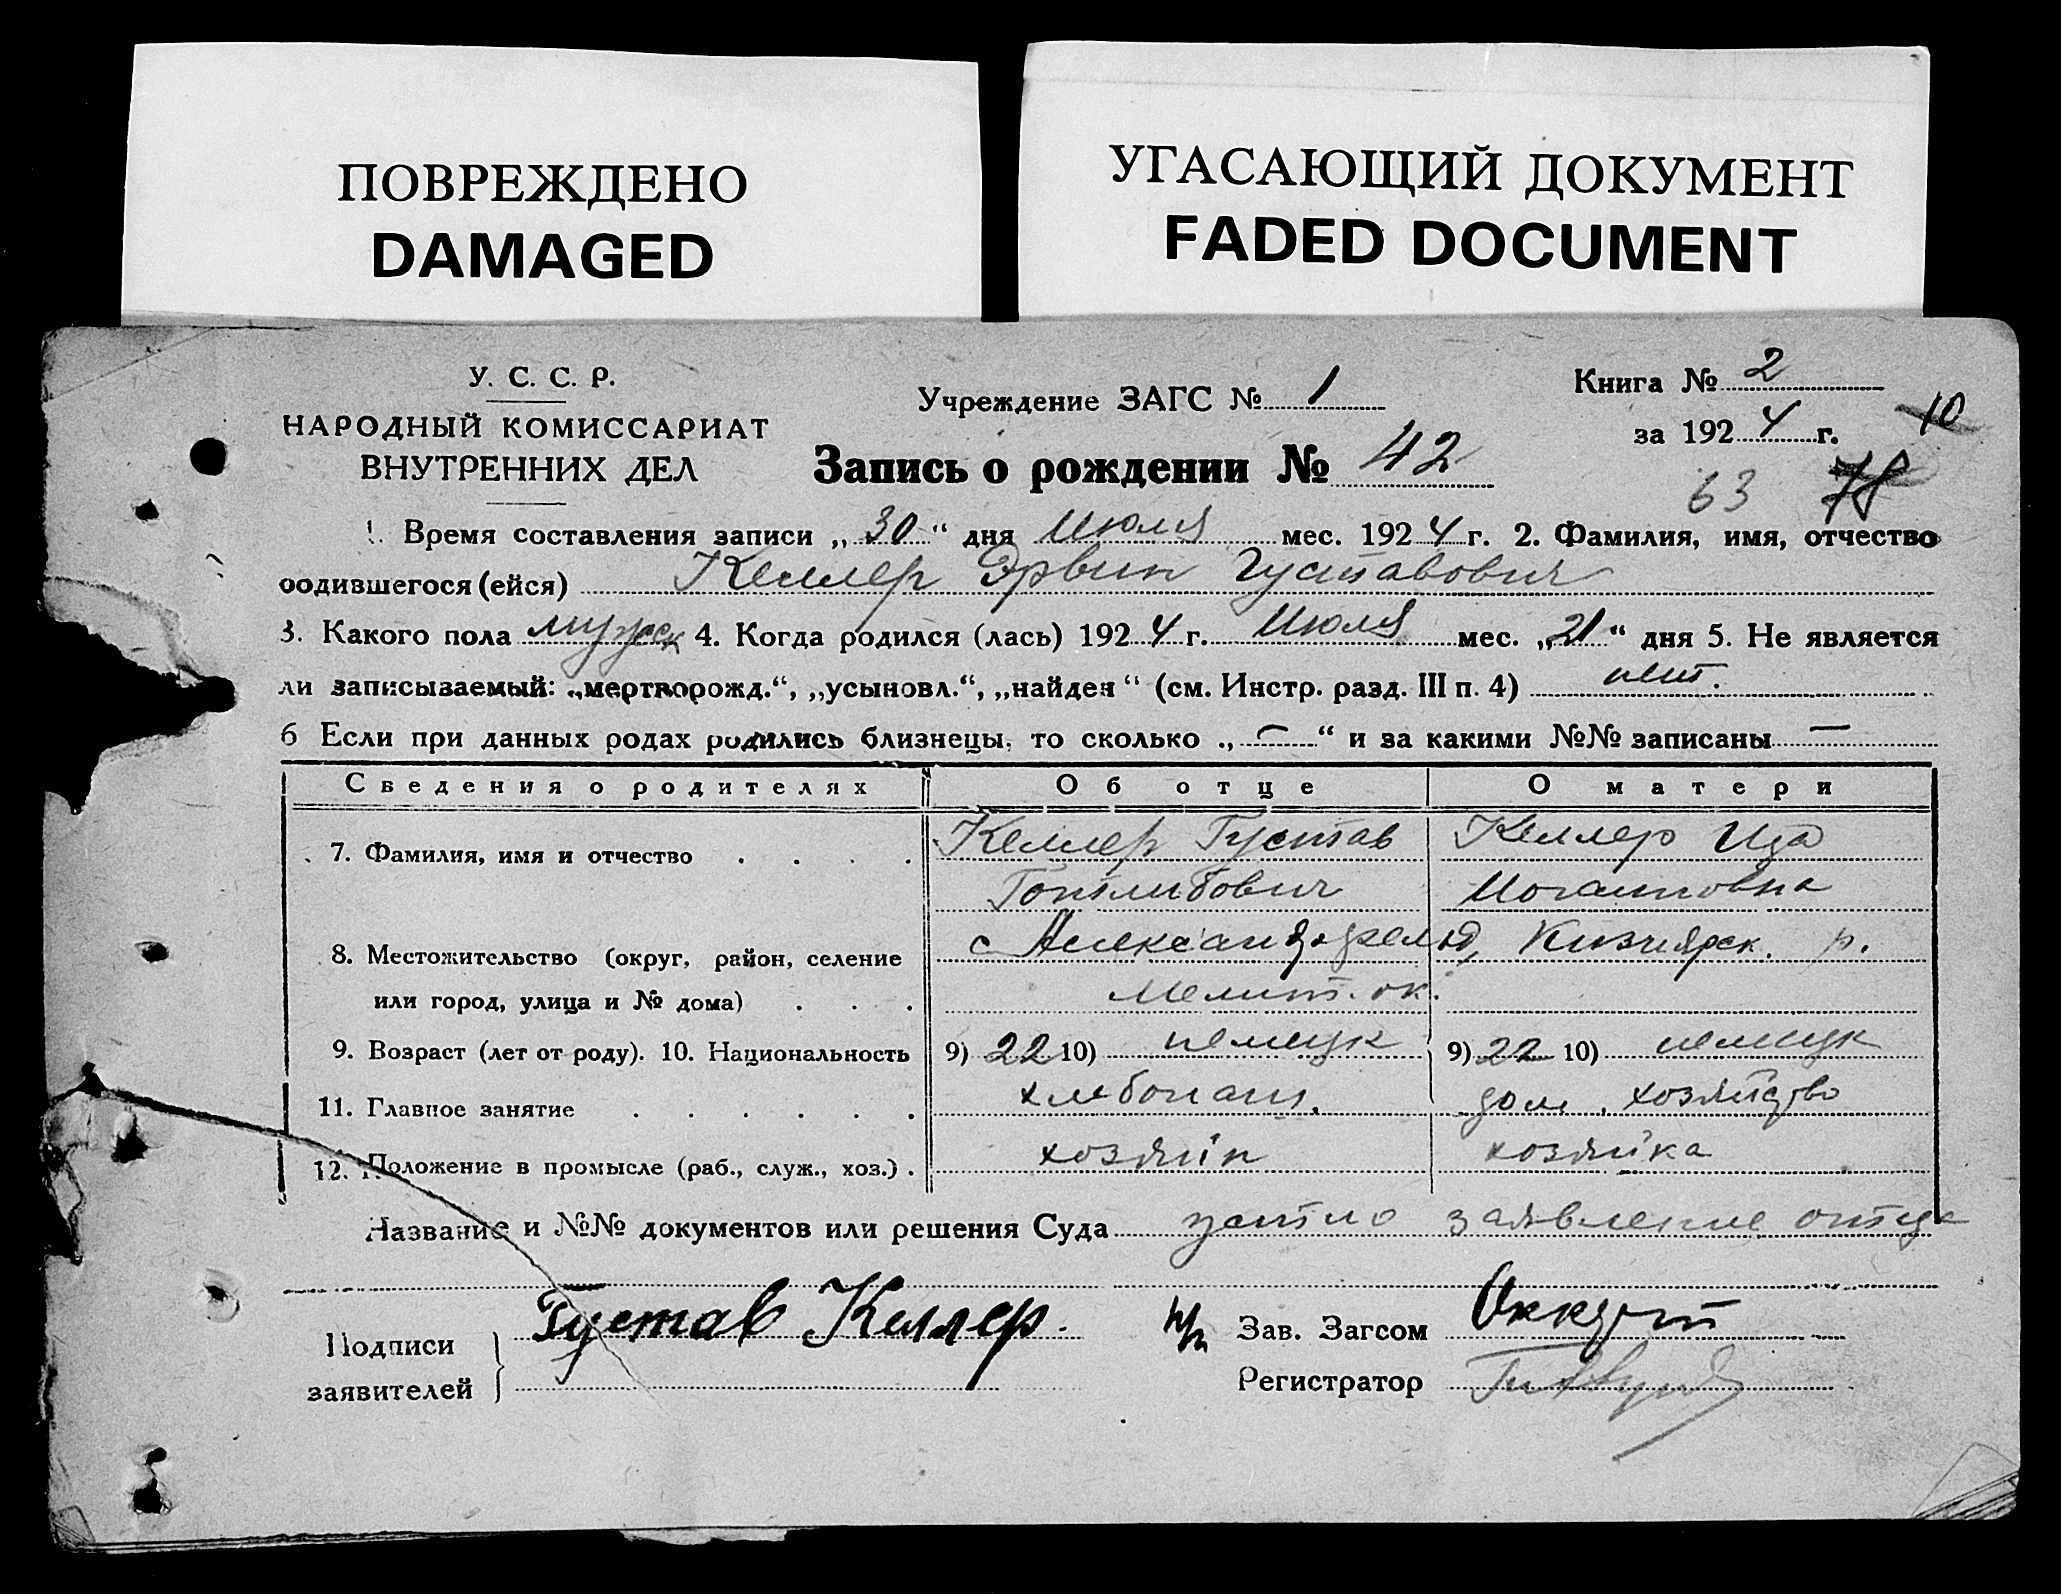 ПОВРЕЖДЕНО
DAMAGED
УГАСАЮЩИЙ ДОКУМЕНТ
FADED DOCUMENT
У. С. С. Р.
НАРОДНЫЙ КОМИССАРИАТ
ВНУТРЕННИХ ДЕЛ
Учреждение ЗАГС № 1
Книга № 2
за 1924 г.
10
Запись о рождении № 42
63 78
1. Время составления записи „30“ дня Июля мес. 1924 г. 2. Фамилия, имя, отчество
родившегося (ейся) Келлер Эрвин Густавович
3. Какого пола мужск 4. Когда родился (лась) 1924 г. Июля мес. „21“ дня 5. Не является
ли записываемый: „мертворожд.“, „усыновл.“, „найден“ (см. Инстр. разд. III п. 4) нет.
6 Если при данных родах родились близнецы, то сколько „—“ и за какими №№ записаны —
Сведения о родителях Об отце О матери
7. Фамилия, имя и отчество Келлер Густав Келлер Ида
Готлибович Иогановна
8. Местожительство (округ, район, селение с Александрфельд, Кизиярск. р.
или город, улица и № дома) Мелит. ок.
9. Возраст (лет от роду). 10. Национальность 9) 22 10) немецк 9) 22 10) немецк
11. Главное занятие хлебопаш. дом. хозяйство
12. Положение в промысле (раб., служ., хоз.) хозяин хозяйка
Название и №№ документов или решения Суда устно заявление отца
Подписи Густав Келлер. Зав. Загсом
заявителей Регистратор